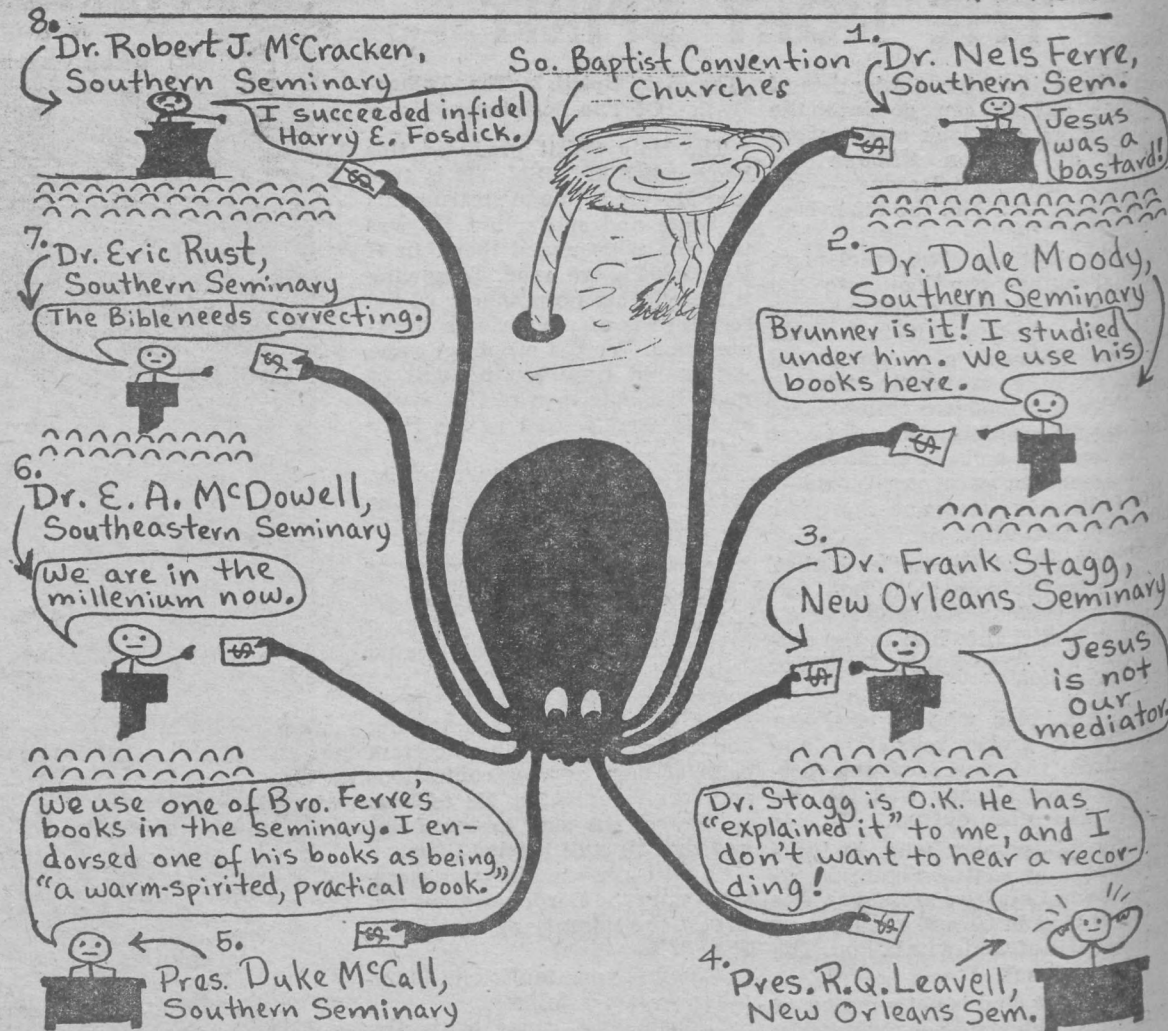 8.
Dr. Robert J. McCracken,
Southern Seminary
I succeeded infidel
Harry E. Fosdick.
So. Baptist Convention
Churches
1.
Dr. Nels Ferre,
Southern Sem.
Jesus
was a
bastard!
7.
Dr. Eric Rust,
Southern Seminary
The Bible needs correcting.
2.
Dr. Dale Moody,
Southern Seminary
Brunner is it! I studied
under him. We use his
books here.
6.
Dr. E. A. McDowell,
Southeastern Seminary
We are in the
millenium now.
3.
Dr. Frank Stagg,
New Orleans Seminary
Jesus
is not
our
mediator.
We use one of Bro. Ferre's
books in the seminary. I en-
dorsed one of his books as being,
"a warm-spirited, practical book."
5.
Pres. Duke McCall,
Southern Seminary
Dr. Stagg is O.K. He has
"explained it" to me, and I
don't want to hear a recor-
ding!
4.
Pres. R.Q. Leavell,
New Orleans Sem.
$
$
$
$
$
$
$
$